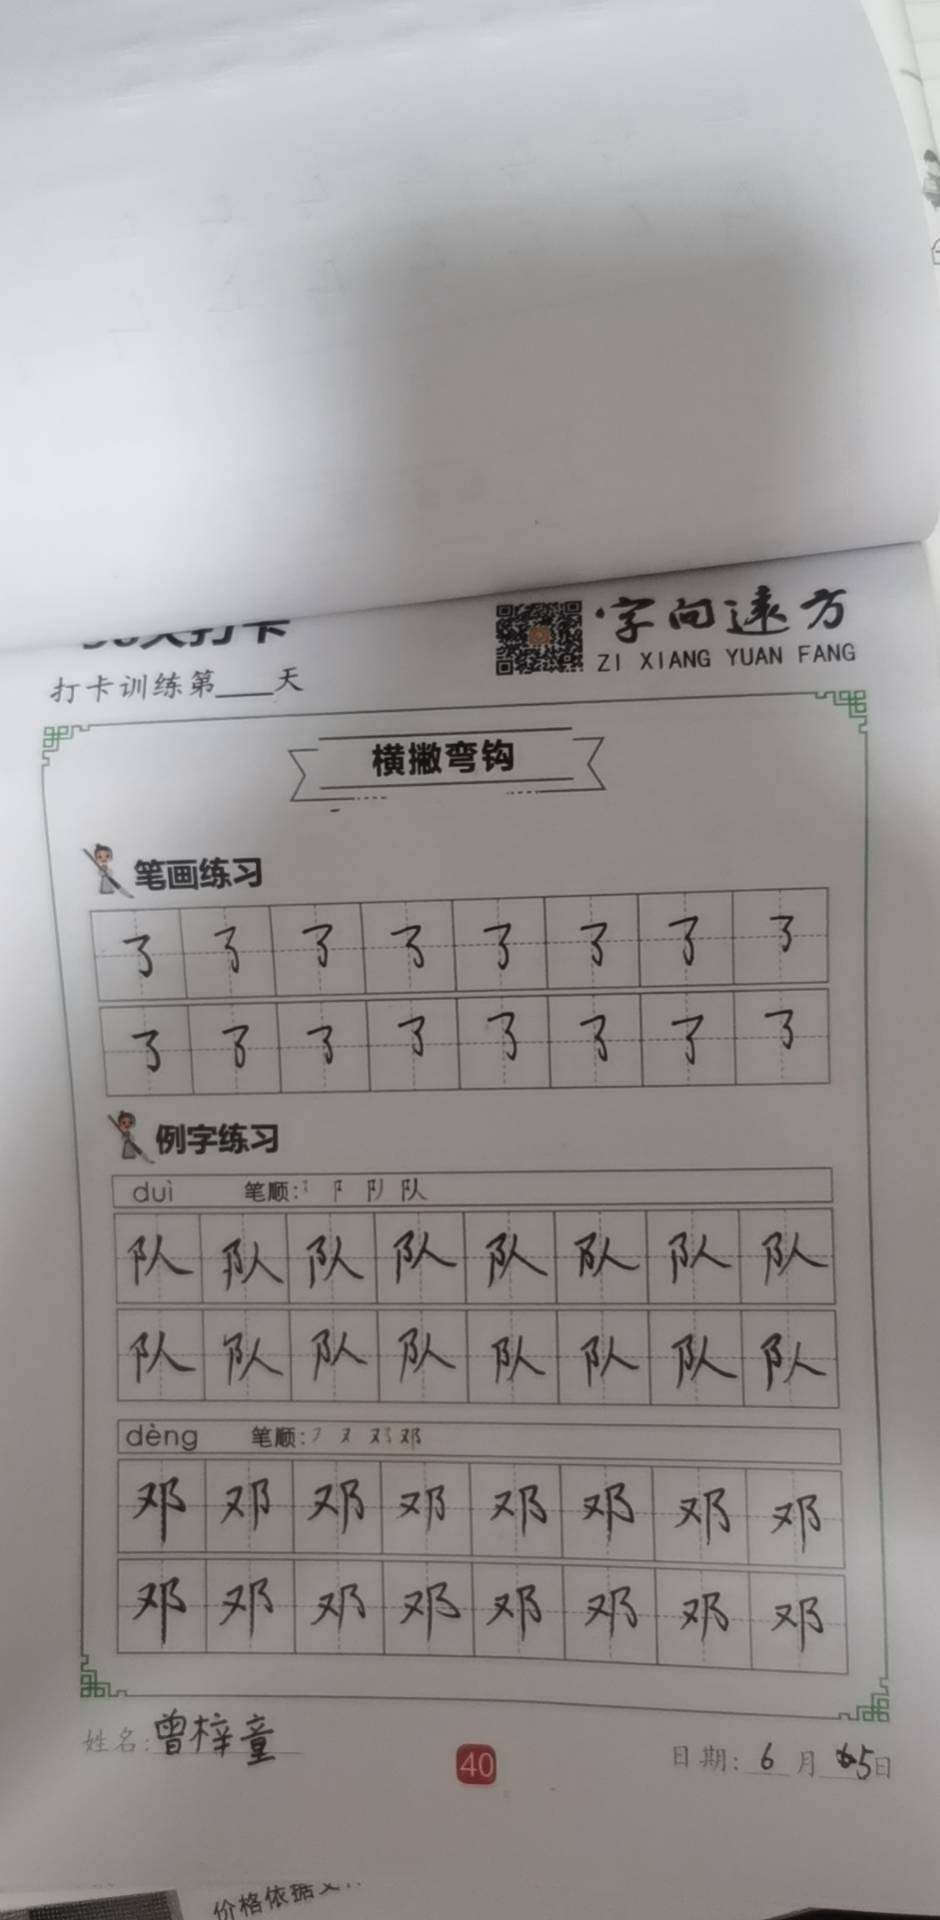 字向远方
ZI XIANG YUAN FANG
打卡训练第____天
横撇弯钩
笔画练习
例字练习
duì 笔顺: 队
队 队 队 队 队 队 队 队
队 队 队 队 队 队 队 队
dèng 笔顺: フ 又 邓
邓 邓 邓 邓 邓 邓 邓 邓
邓 邓 邓 邓 邓 邓 邓 邓
姓名: 曾梓童
40
日期: 6月5日
价格依据